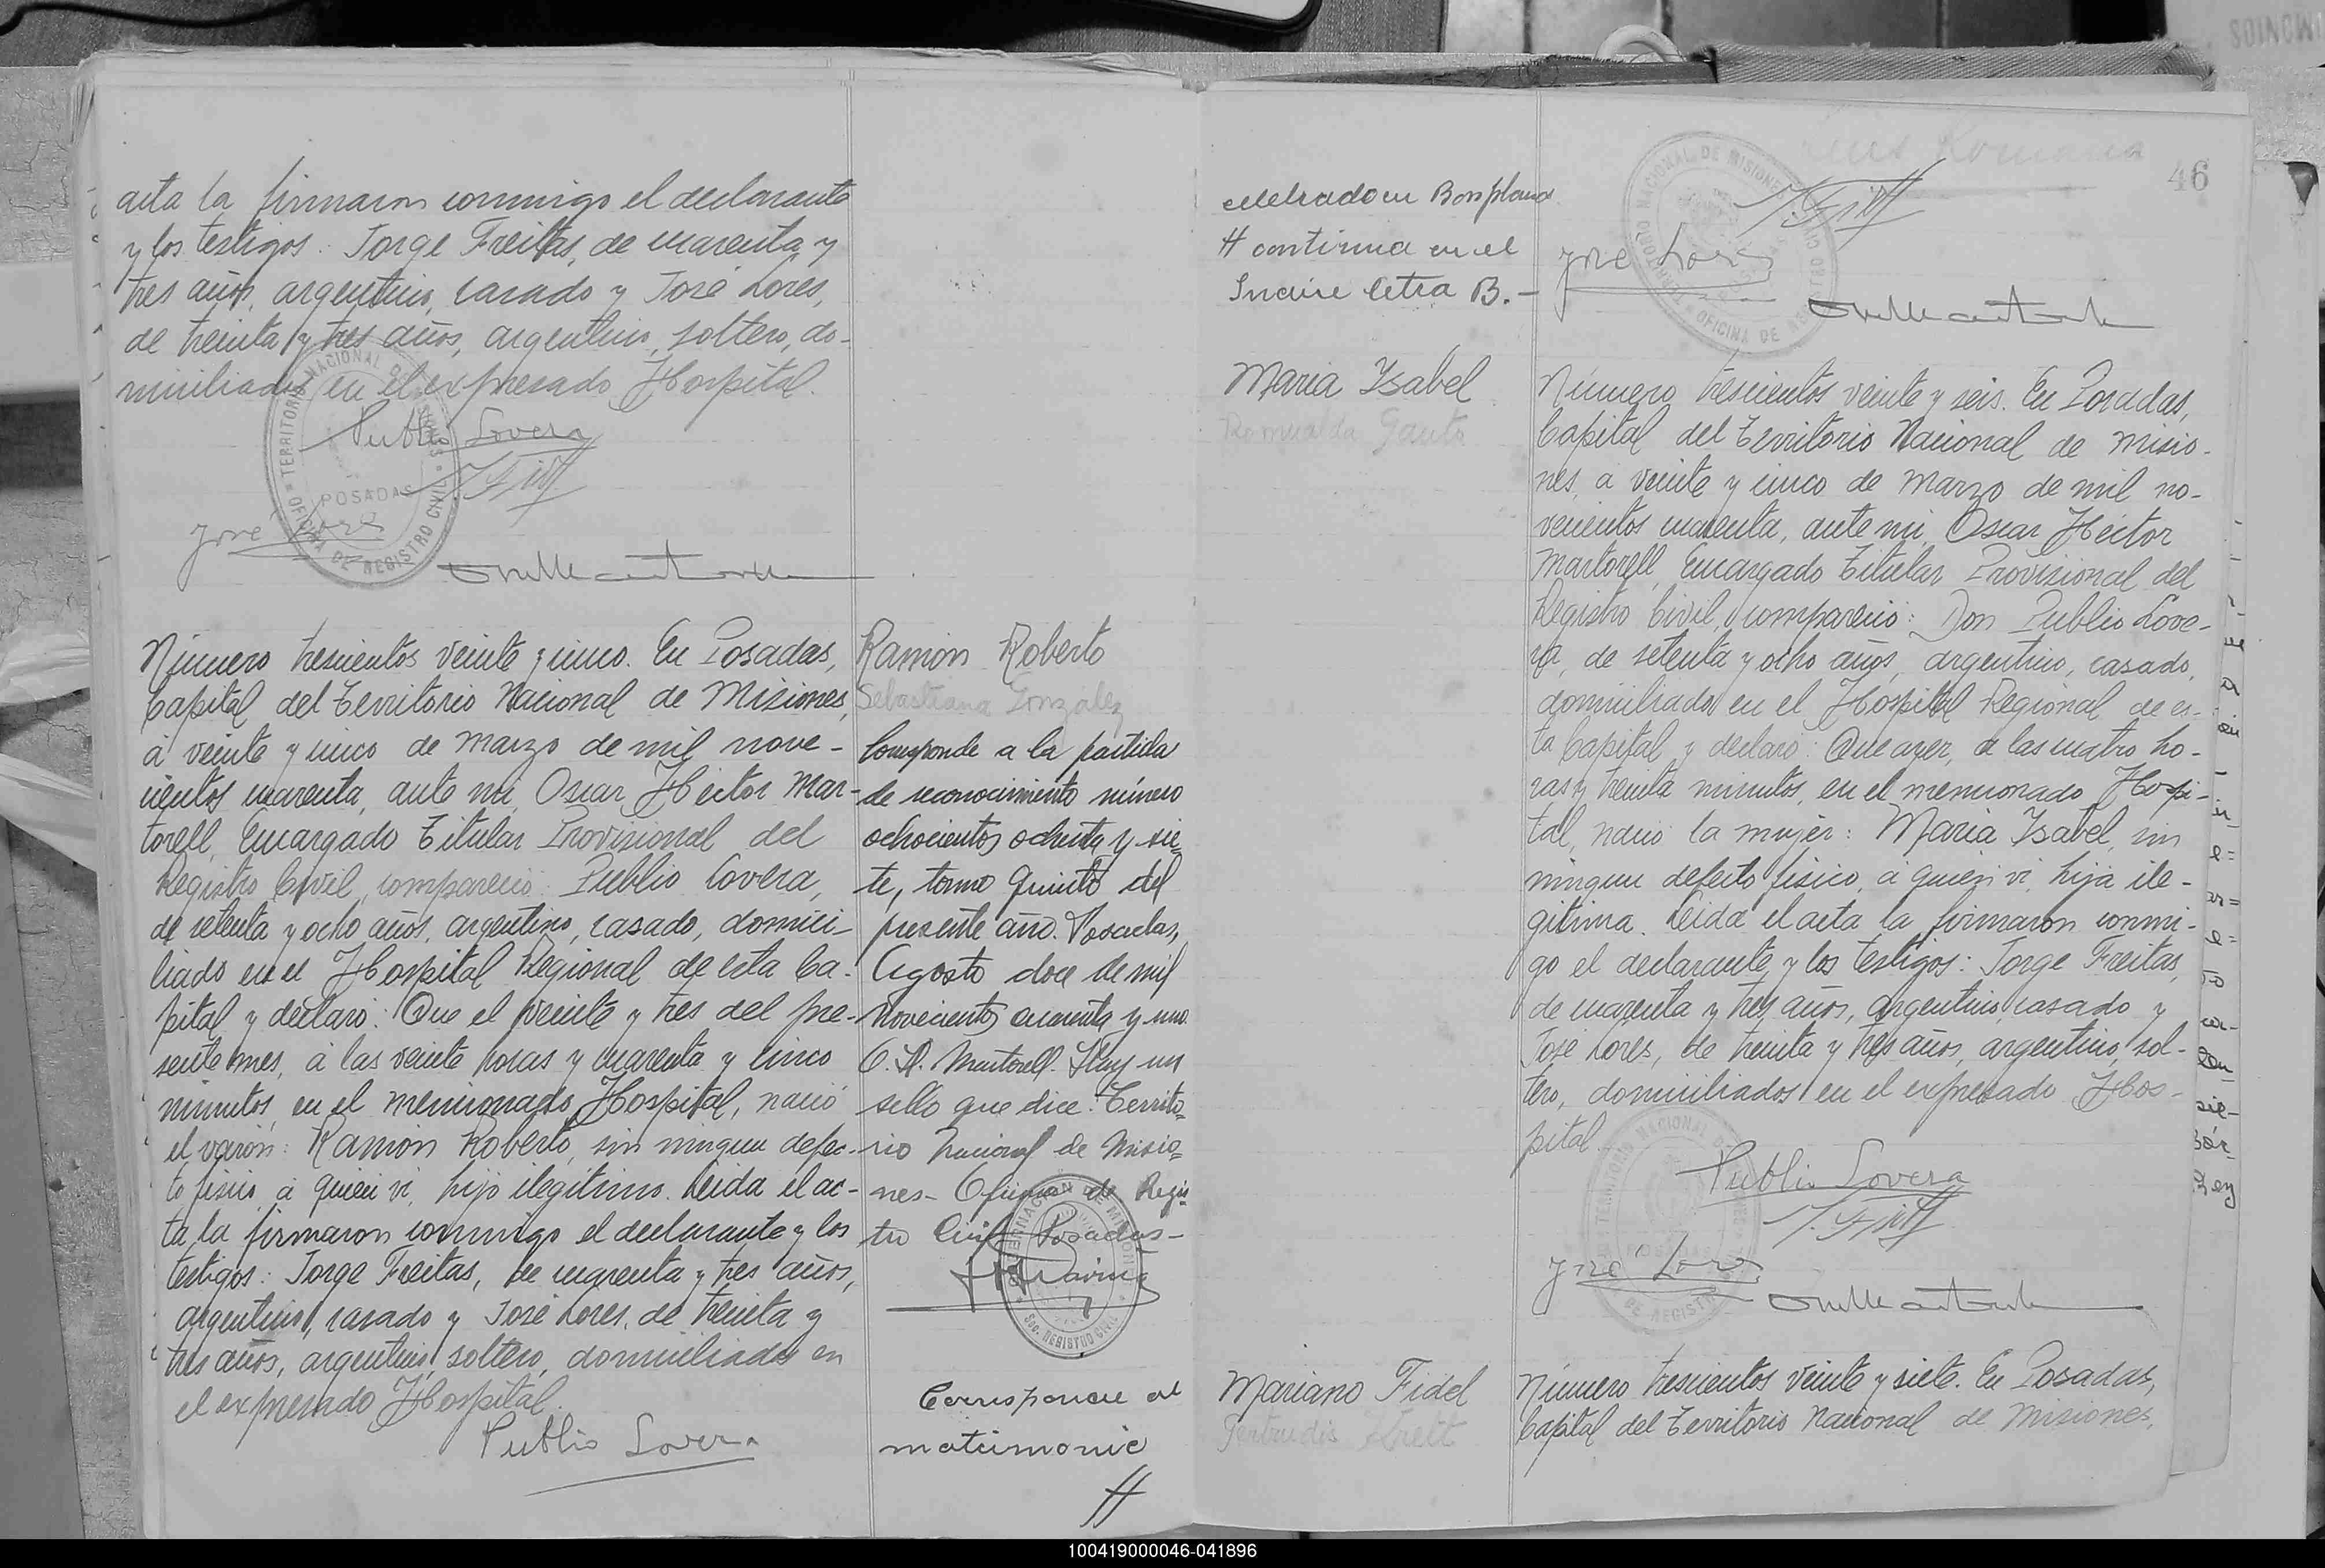 acta la firmaron conmigo el declarante
y los testigos: Jorge Freitas, de cuarenta y
tres años, argentino, casado y José Lores,
de treinta y tres años, argentino, soltero, do-
miciliados en el expresado Hospital.
Publio Lovera
José Lores
TERRITORIO NACIONAL DE MISIONES
POSADAS
OFICINA DE REGISTRO CIVIL
Número trescientos veinte y cinco. En Posadas,
Capital del Territorio Nacional de Misiones,
a veinte y cinco de marzo de mil nove-
cientos cuarenta, ante mi, Oscar Héctor Mar-
torell, Encargado Titular Provisional del
Registro Civil, compareció: Publio Lovera,
de setenta y ocho años, argentino, casado, domici-
liado en el Hospital Regional de esta Ca-
pital y declaró: Que el veinte y tres del pre-
sente mes, a las veinte horas y cuarenta y cinco
minutos, en el mencionado Hospital, nació
el varón: Ramón Roberto, sin ningun defec-
to fisico, a quien vi, hijo ilegitimo. Leida el ac-
ta la firmaron conmigo el declarante y los
testigos: Jorge Freitas, de cuarenta y tres años,
argentino, casado y José Lores, de treinta y
tres años, argentino, soltero, domiciliados en
el expresado Hospital.
Publio Lovera
Ramón Roberto
Sebastiana González
Corresponde a la partida
de reconocimiento número
ochocientos ochenta y sie=
te, tomo quinto del
presente año. Posadas,
Agosto doce de mil
novecientos cuarenta y uno.
O. H. Martorell. Hay un
sello que dice: Territo=
rio Nacional de Misio=
nes- Oficina de Regis
tro Civil Posadas-
GOBERNACION DE MISIONES
Sec. REGISTRO CIVIL
Corresponde al
matrimonio
#
celebrado en Bonpland
# continua en el
Indice letra B.-
46
José Lores
TERRITORIO NACIONAL DE MISIONES
OFICINA DE REGISTRO CIVIL
Maria Ysabel
Romualda Gauto
Número trescientos veinte y seis. En Posadas,
Capital del Territorio Nacional de Misio-
nes, a veinte y cinco de marzo de mil no-
vecientos cuarenta, ante mi, Oscar Héctor
Martorell, Encargado Titular Provisional del
Registro Civil, compareció: Don Publio Love-
ra, de setenta y ocho años, argentino, casado,
domiciliado en el Hospital Regional de es-
ta Capital y declaró: Que ayer, a las cuatro ho-
ras y treinta minutos, en el mencionado Hospi-
tal, nació la mujer: Maria Ysabel, sin
ningun defecto fisico, a quien vi, hija ile-
gitima. Leida el acta la firmaron conmi-
go el declarante y los testigos: Jorge Freitas,
de cuarenta y tres años, argentino, casado y
José Lores, de treinta y tres años, argentino, sol-
tero, domiciliados en el expresado Hos-
pital.
Publio Lovera
José Lores
Mariano Fidel
Gertrudis
Número trescientos veinte y siete. En Posadas,
Capital del Territorio Nacional de Misiones,
100419000046-041896